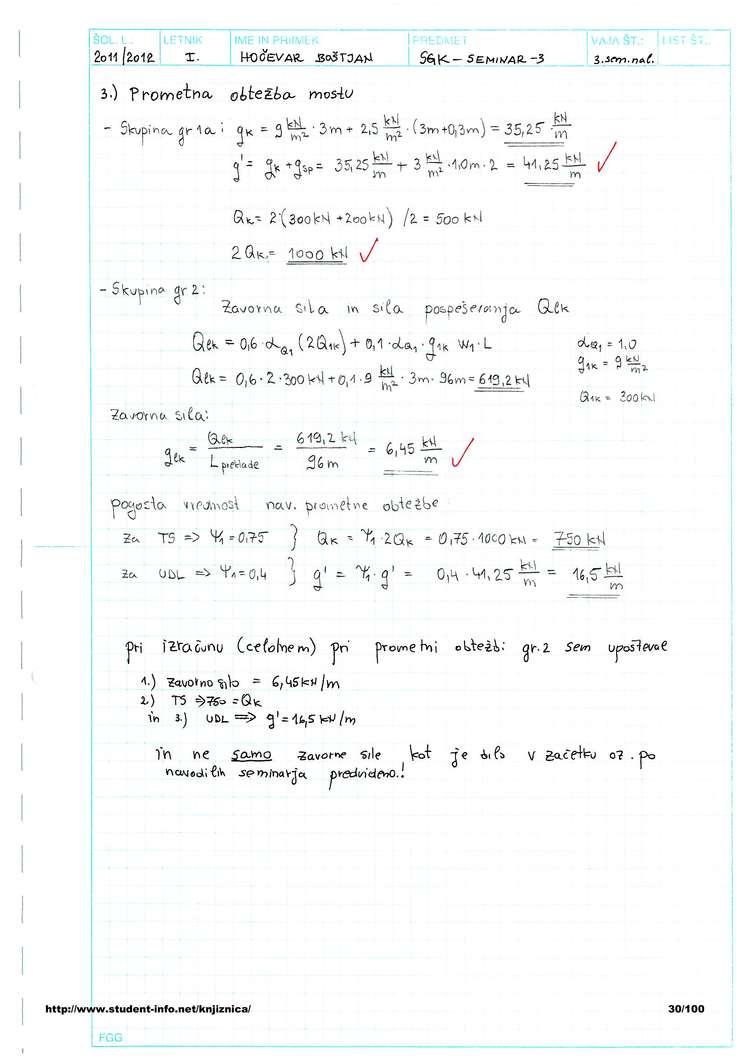 ŠOL. L. LETNIK IME IN PRIIMEK PREDMET VAJA ŠT.: LIST ŠT.:
2011/2012 I. HOČEVAR BOŠTJAN SGK - SEMINAR -3 3.sem.nal.
3.) Prometna obtežba mostu
- Skupina gr1a: gk = 9 kN/m² · 3m + 2,5 kN/m² · (3m+0,3m) = 35,25 kN/m
g' = gk + gsp = 35,25 kN/m + 3 kN/m² · 1,0m · 2 = 41,25 kN/m ✓
Qk = 2·(300kN + 200kN) /2 = 500 kN
2Qk = 1000 kN ✓
- Skupina gr2:
Zavorna sila in sila pospeševanja Qlk
Qlk = 0,6 · αQ1 (2Q1k) + 0,1 · αQ1 · g1k w1 · L
αQ1 = 1.0
g1k = 9 kN/m²
Qlk = 0,6 · 2 · 300 kN + 0,1 · 9 kN/m² · 3m · 96m = 619,2 kN
Q1k = 300kN
Zavorna sila:
glk = Qlk / L preklade = 619,2 kN / 96m = 6,45 kN/m ✓
pogosta vrednost nav. prometne obtežbe
za TS => Ψ1 = 0,75 } Qk = Ψ1 · 2Qk = 0,75 · 1000 kN = 750 kN
za UDL => Ψ1 = 0,4 } g' = Ψ1 · g' = 0,4 · 41,25 kN/m = 16,5 kN/m
pri izračunu (celotnem) pri prometni obtežbi gr.2 sem upošteval
1.) zavorno silo = 6,45 kN/m
2.) TS => 750 = Qk
in 3.) UDL => g' = 16,5 kN/m
in ne samo zavorne sile kot je bilo v začetku oz. po
navodilih seminarja predvideno.!
http://www.student-info.net/knjiznica/ 30/100
FGG